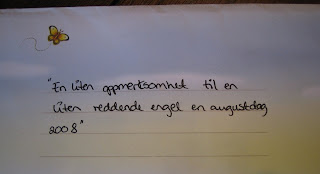 "En liten oppmerksomhet til en
liten reddende engel en augustdag
2008"